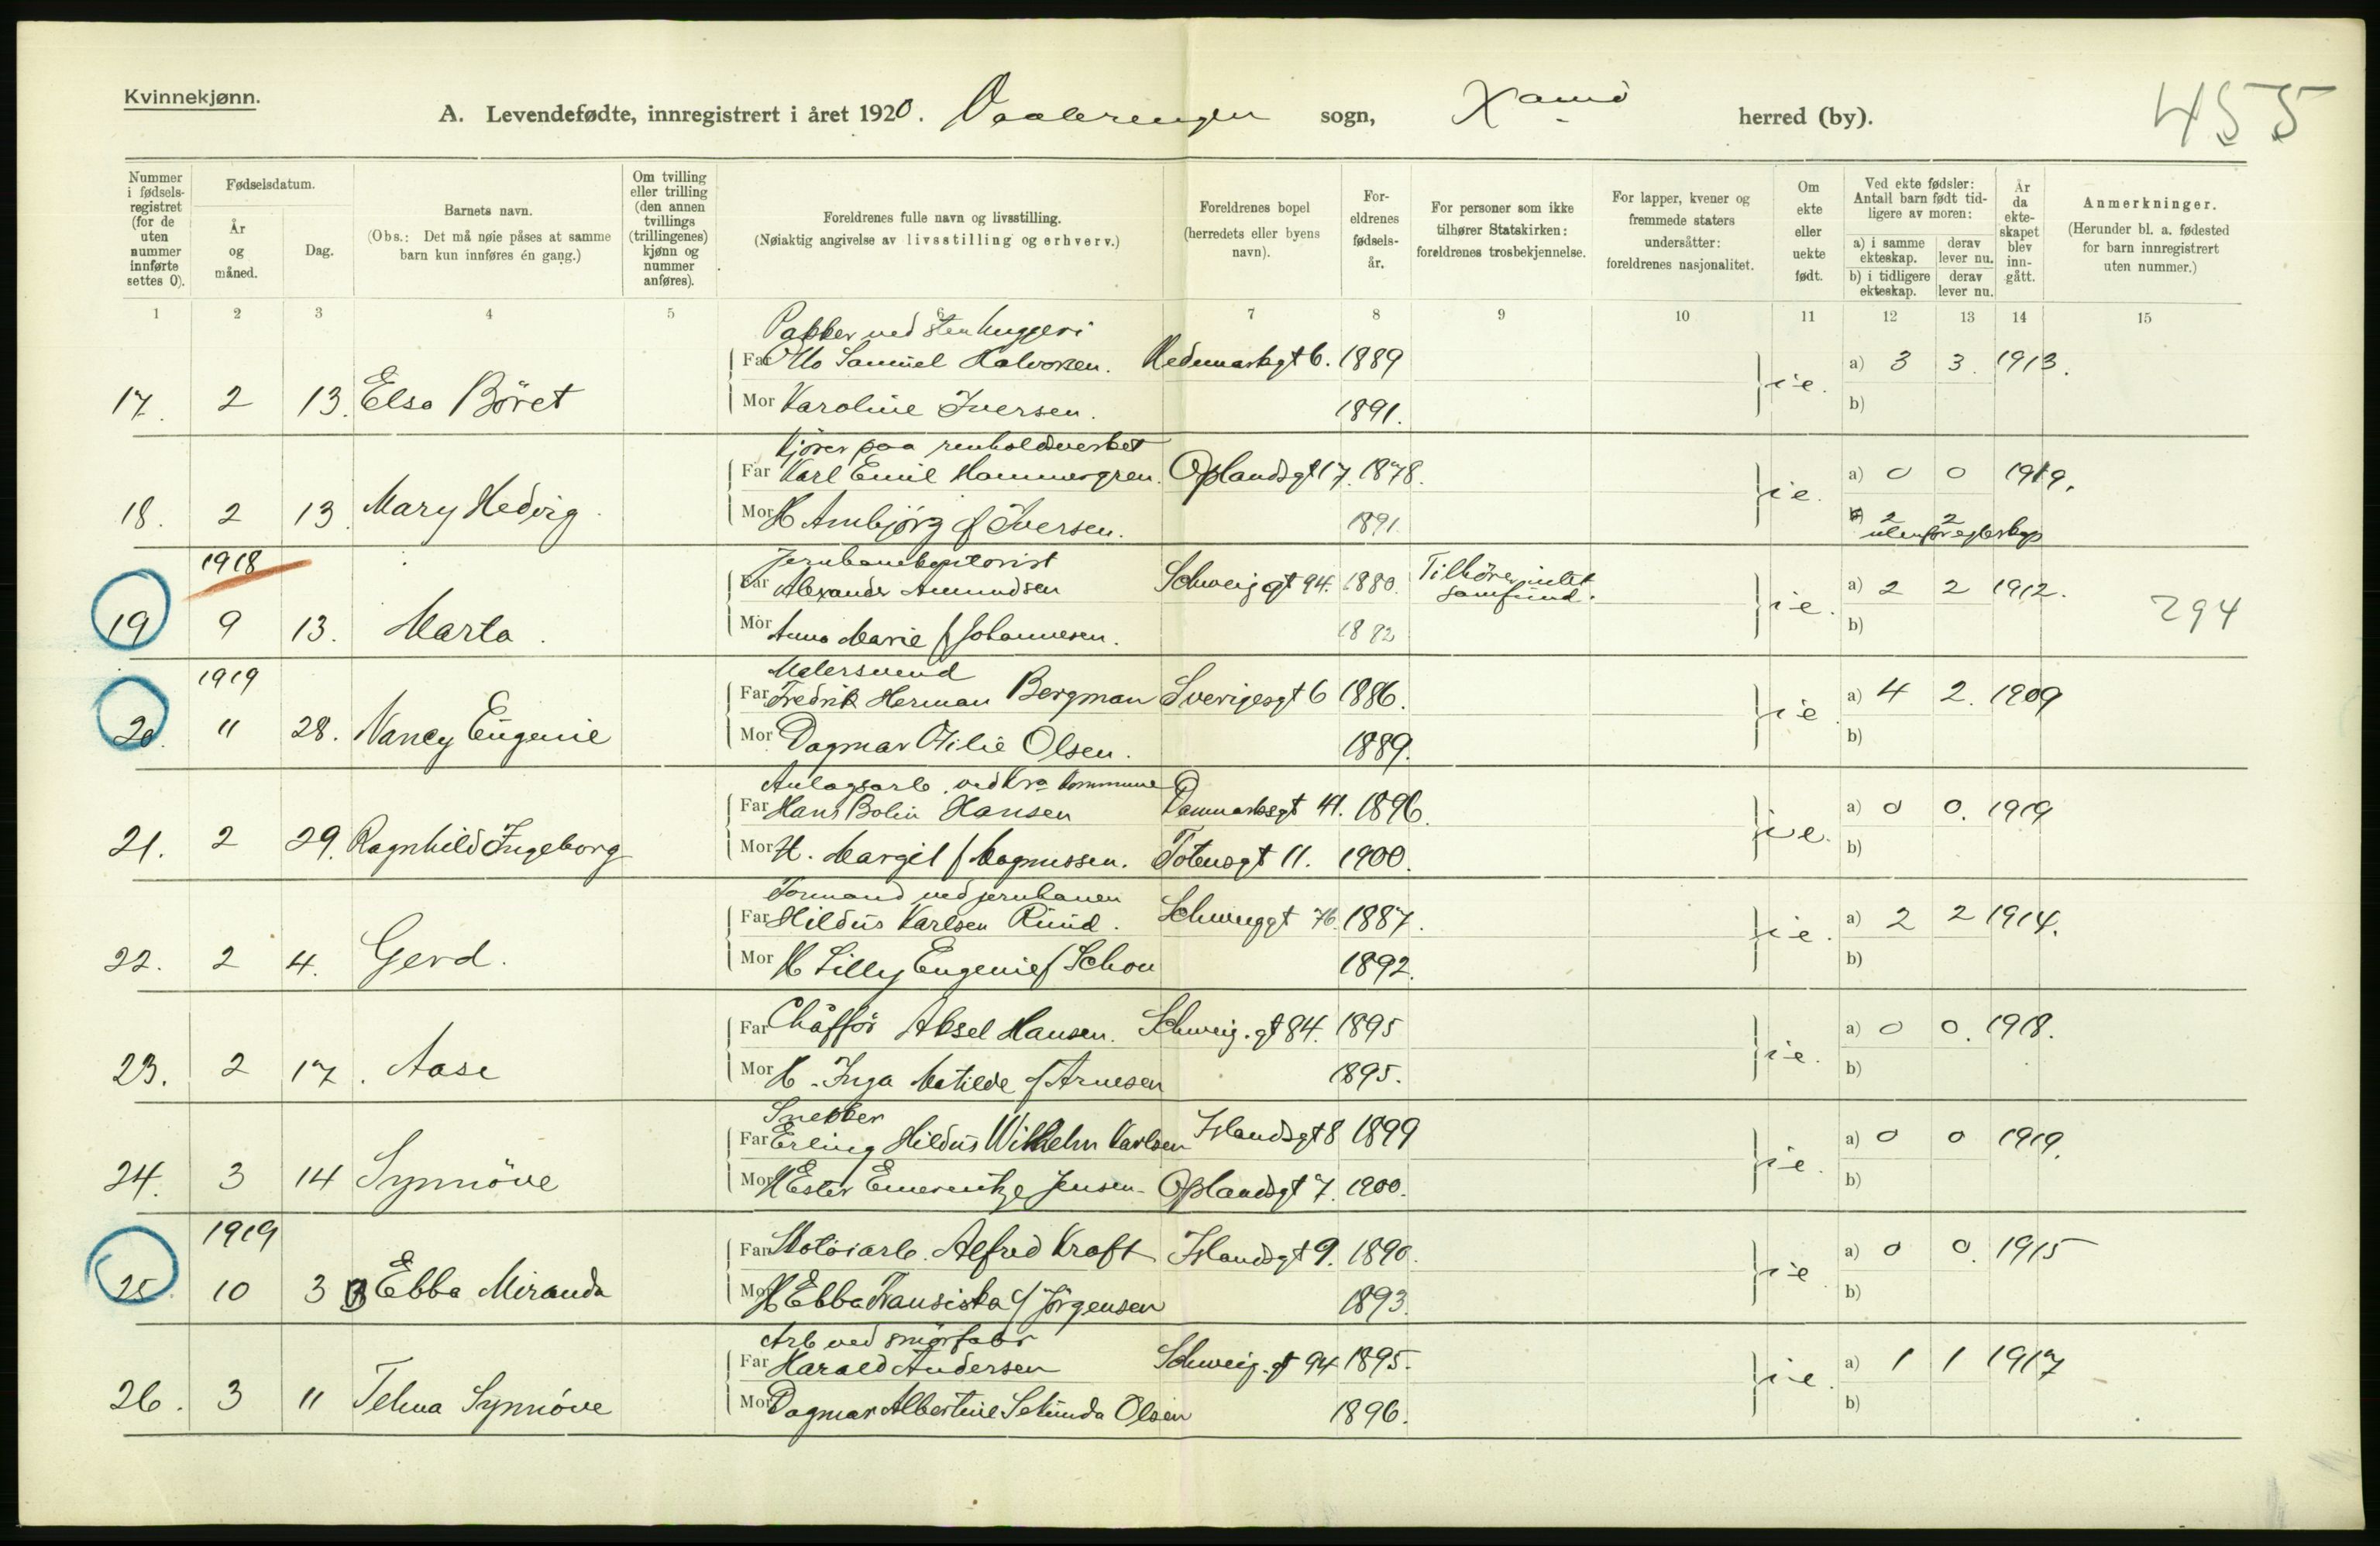 Kvinnekjønn.
A. Levendefødte, innregistrert i året 1920. Vaalerengen sogn, Xania herred (by). 455
Nummer i fødsels-registret (for de uten nummer innførte settes 0).
Fødselsdatum.
År og måned.
Dag.
Barnets navn.
(Obs.: Det må nøie påses at samme barn kun innføres én gang.)
Om tvilling eller trilling (den annen tvillings (trillingenes) kjønn og nummer anføres).
Foreldrenes fulle navn og livsstilling.
(Nøiaktig angivelse av livsstilling og erhverv.)
Foreldrenes bopel (herredets eller byens navn).
For-eldrenes fødsels-år.
For personer som ikke tilhører Statskirken: foreldrenes trosbekjennelse.
For lapper, kvener og fremmede staters undersåtter: foreldrenes nasjonalitet.
Om ekte eller uekte født.
Ved ekte fødsler: Antall barn født tid-ligere av moren:
a) i samme ekteskap. derav lever nu.
b) i tidligere ekteskap. derav lever nu.
År da ekte-skapet blev inn-gått.
Anmerkninger.
(Herunder bl. a. fødested for barn innregistrert uten nummer.)
1 2 3 4 5 7 8 9 10 11 12 13 14 15
Pakker ved stenhuggeri
Far Otto Samuel Halvorsen. Hedemarksgt 6. 1889 a) 3 3. 1913.
17. 2 13. Elsa Böret i e.
Mor Karoline Iversen. 1891. b)
Kjører paa renholdsverket
Far Karl Emil Hammergren. Oplandsgt 17. 1878. a) 0 0 1919.
18. 2 13. Mary Hedvig. i e.
Mor H Ambjörg f Iversen. 1891. b) 2 2
utenfor egteskap
1918 Jernbanekontorist
Far Alexander Amundsen Schweig gt 94. 1880. Tilhører intet samfund. a) 2 2 1912.
19 9 13. Marta. i e. 294
Mor Anna Marie f Johannesen. 1882 b)
1919 Malersvend
Far Fredrik Herman Bergman Sverigesgt 6 1886. a) 4 2. 1909
20. 11 28. Nancy Eugenie i e.
Mor Dagmar Otilie Olsen. 1889. b)
Anlagsarb. ved Kra kommune
Far Hans Bolin Hansen Danmarksgt 41. 1896. a) 0 0. 1919
21. 2 29. Ragnhild Ingeborg i e.
Mor H. Margit f Magnussen. Totensgt 11. 1900. b)
Formand ved jernbanen
Far Hildus Karlsen Ruud. Schweiggt 76. 1887. a) 2 2 1914.
22. 2 4. Gerd. i e.
Mor H Lilly Eugenie f Schou 1892. b)
Far Chåffør Aksel Hansen. Schweig. gt 84. 1895 a) 0 0. 1918.
23. 2 17. Aase i e.
Mor H. Inga Matilde f Arnesen 1895. b)
Snekker
Far Erling Hildus Wilhelm Karlsen Islandsgt 8 1899 a) 0 0 1919.
24. 3 14 Synnöve i e.
Mor H Ester Emerentze Jensen. Oplandsgt 7. 1900. b)
1919
Far Motorarb. Alfred Kraft Islandsgt 9. 1890. a) 0 0. 1915
25. 10 3 Ebba Miranda i e.
Mor H Ebba Fransiska f Jørgensen 1893. b)
Arb ved smørfabr
Far Harald Andersen Schweig. gt 94 1895. a) 1 1 1917
26. 3 11 Telma Synnöve i e.
Mor Dagmar Albertine Sekunda Olsen 1896. b)